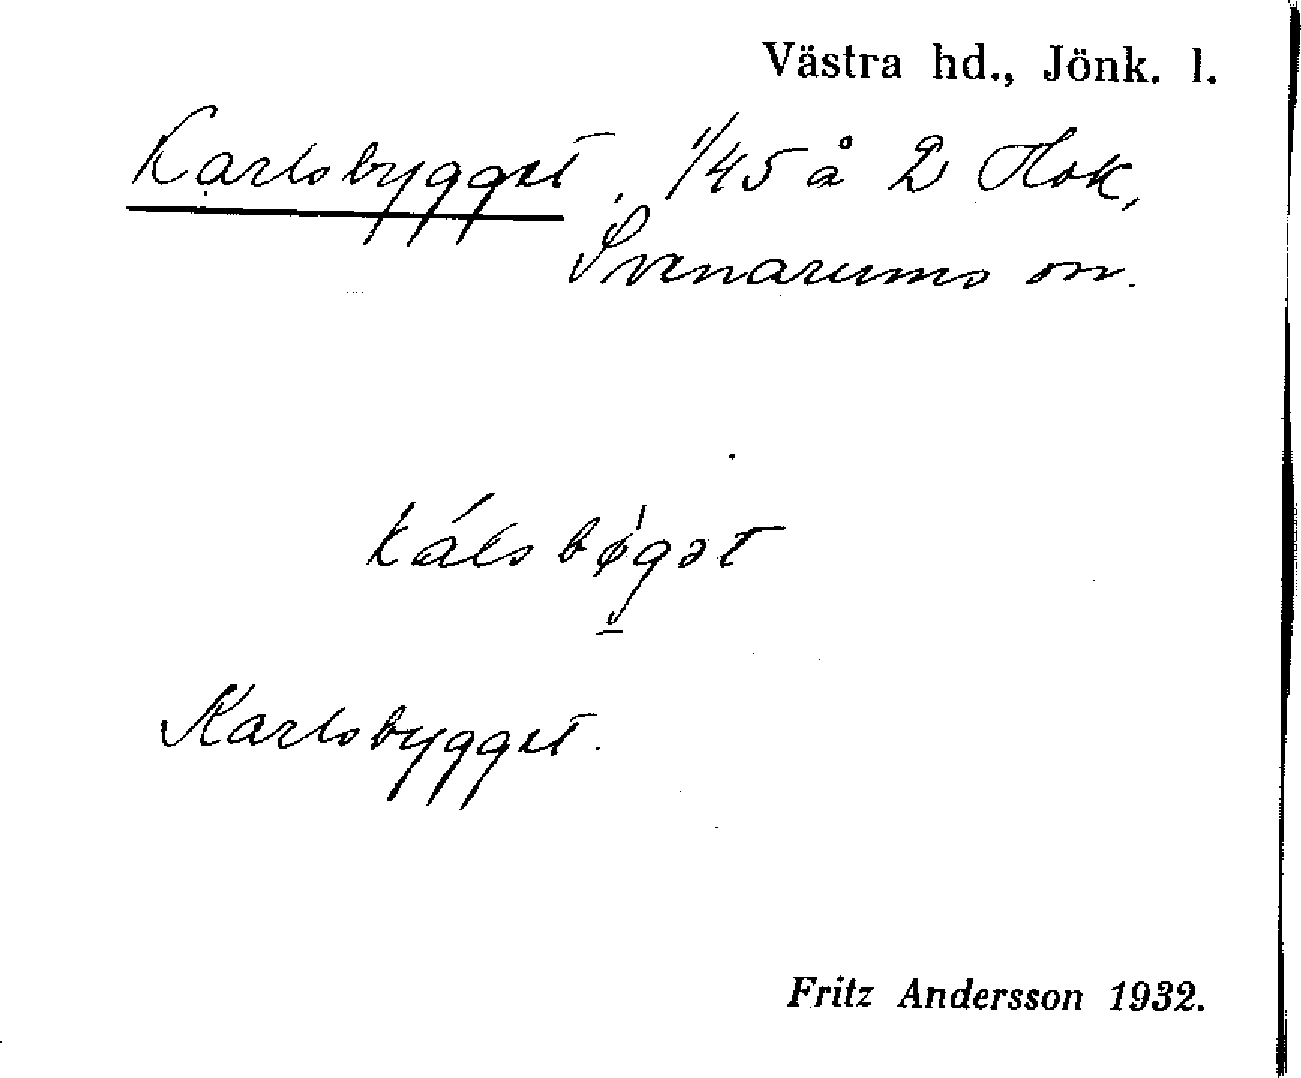 Västra hd., Jönk. l.
Karlsbygget, 1/45 å 2 Hok,
Svenarums sn.
kálsbøgət
Karlsbygget.
Fritz Andersson 1932.